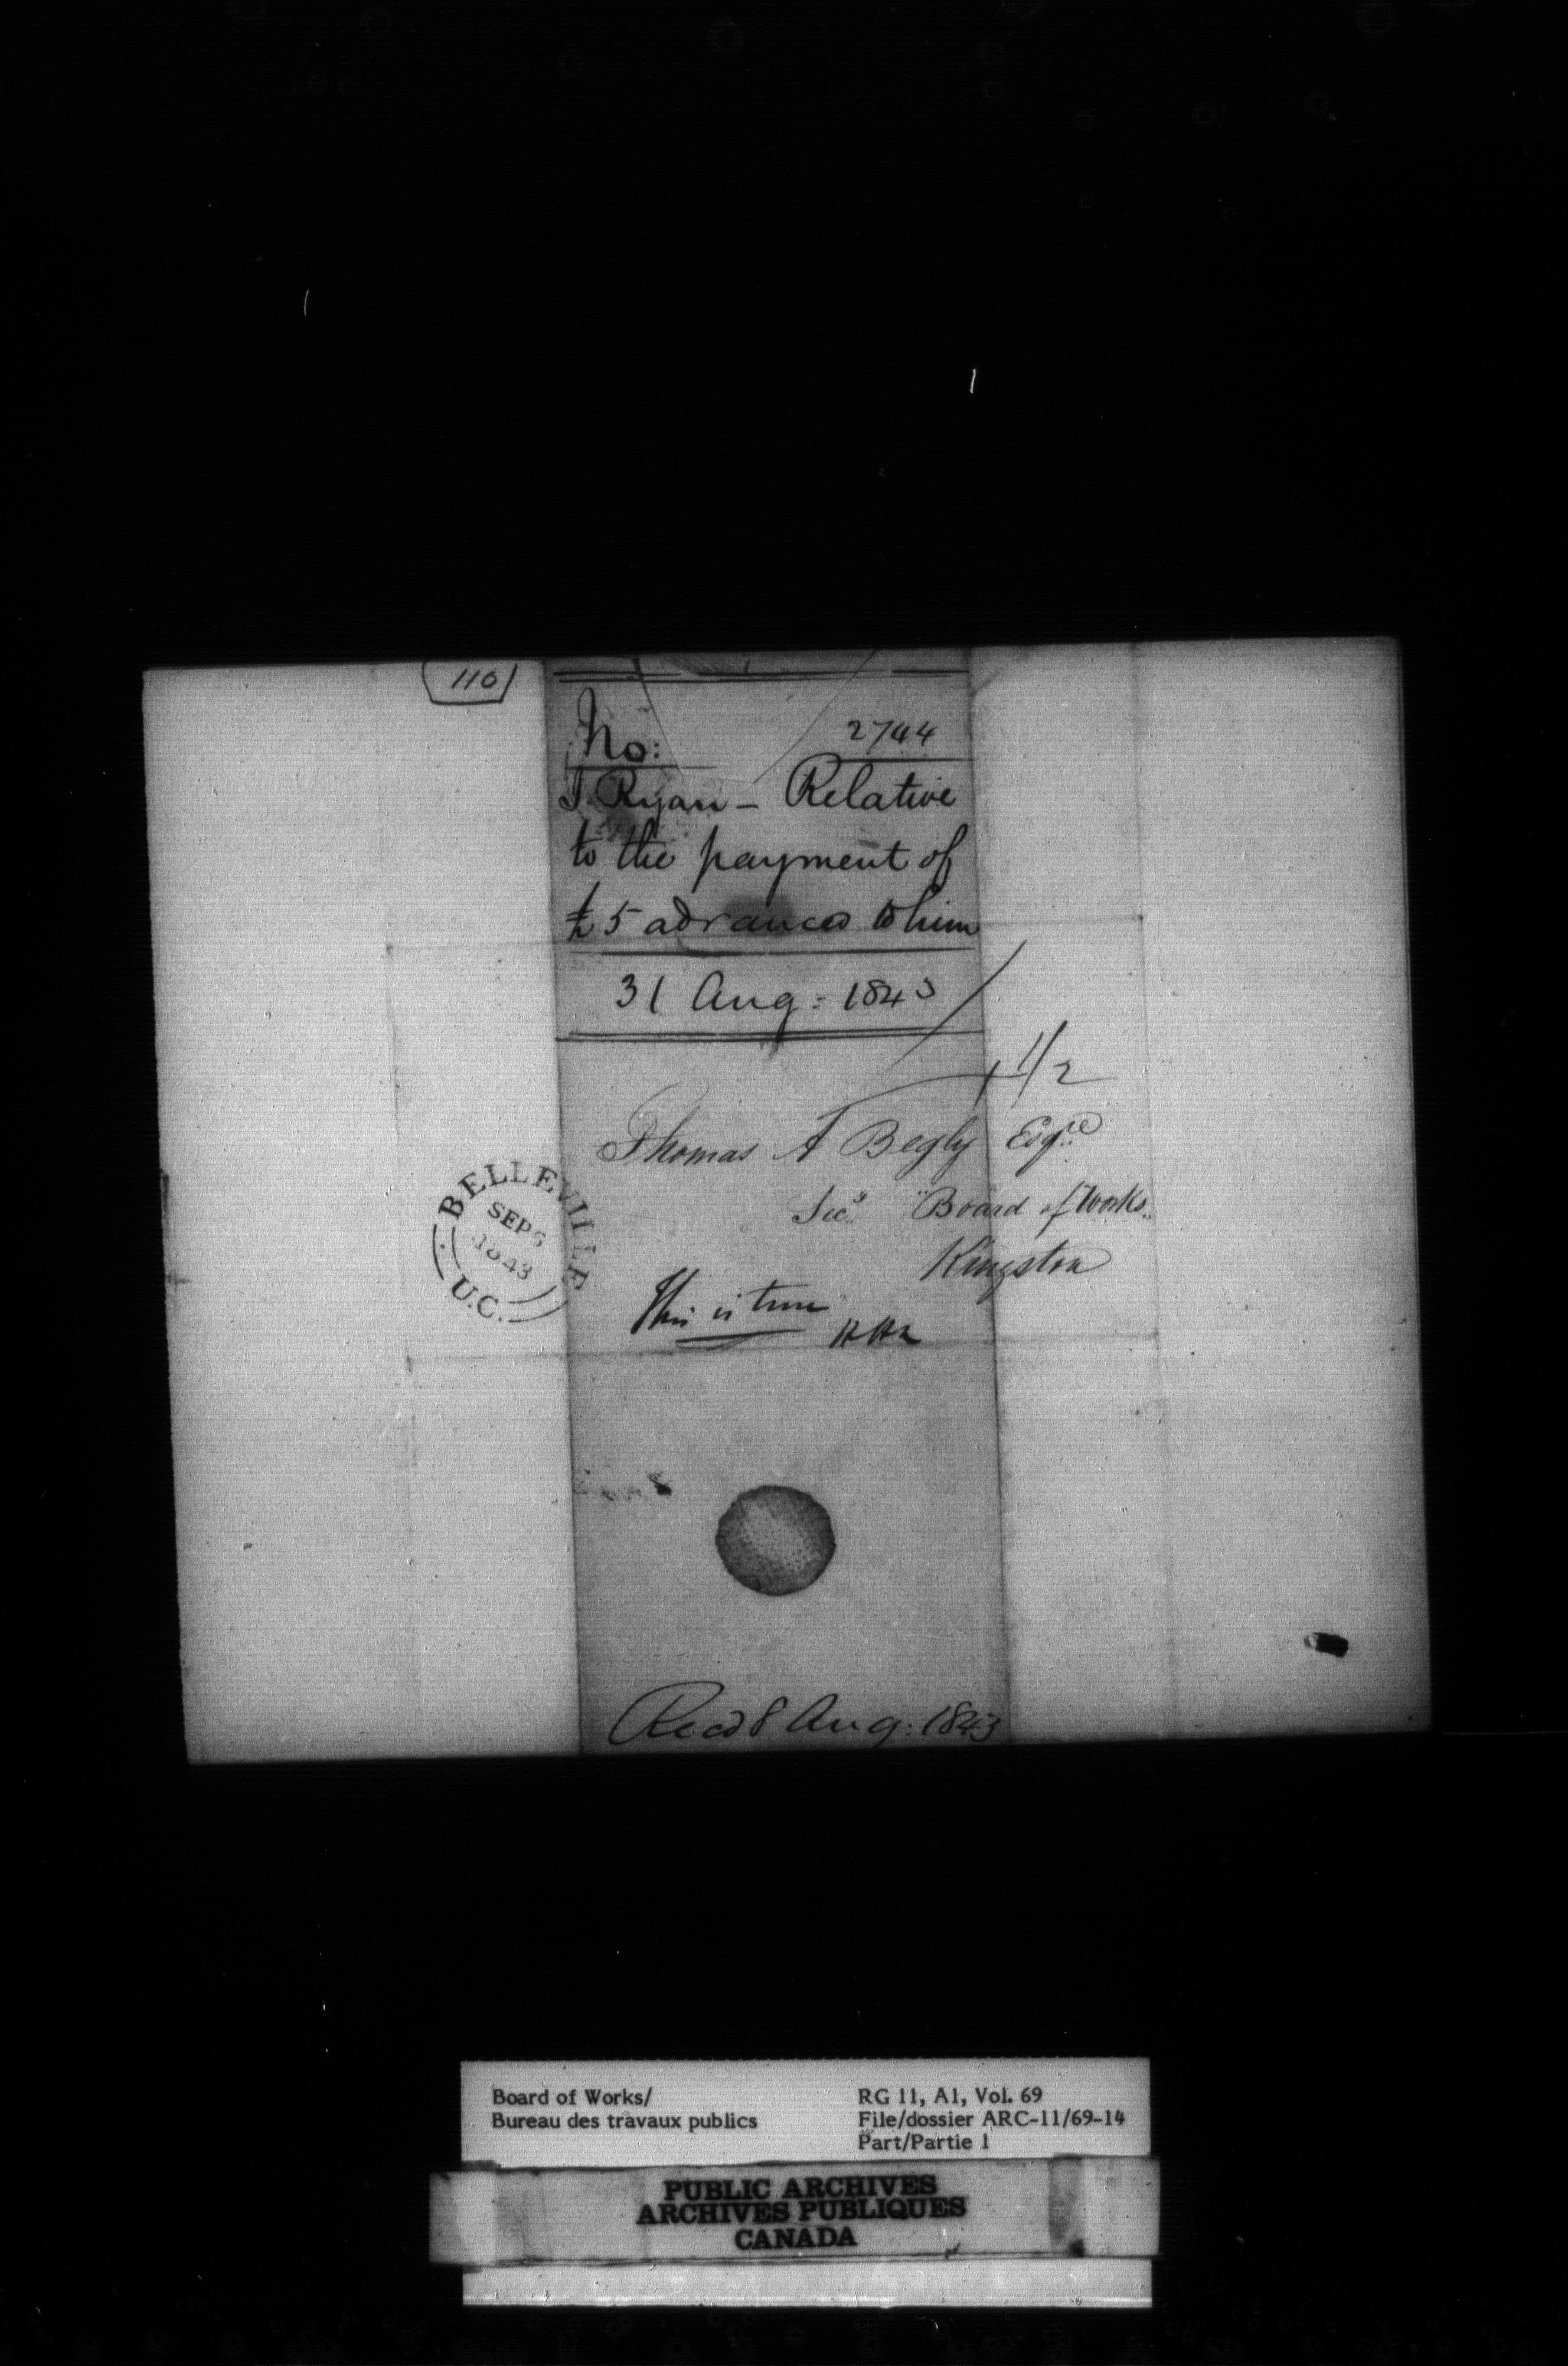 110
No: 2744
J. Ryan – Relative
to the payment of
£5 advanced to him
31 Aug: 1843
1/2
Thomas A Begly Esqre
Secy Board of Works
Kingston
BELLEVILLE
SEP 6
1843
U.C.
This is true
HHK
Recd 8 Aug: 1843
Board of Works/
Bureau des travaux publics
RG 11, A1, Vol. 69
File/dossier ARC-11/69-14
Part/Partie 1
PUBLIC ARCHIVES
ARCHIVES PUBLIQUES
CANADA